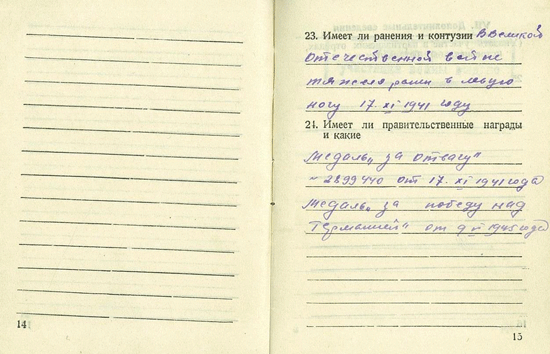 23. Имеет ли ранения и контузии В Великой
Отечественной войне
тяжело ранен в левую
ногу 17. XI 1941 году
24. Имеет ли правительственные награды
и какие
Медаль „за отвагу"
2899440 от 17. XI 1941 года
Медаль „за победу над
Германией" от 9 1945 года
14
15